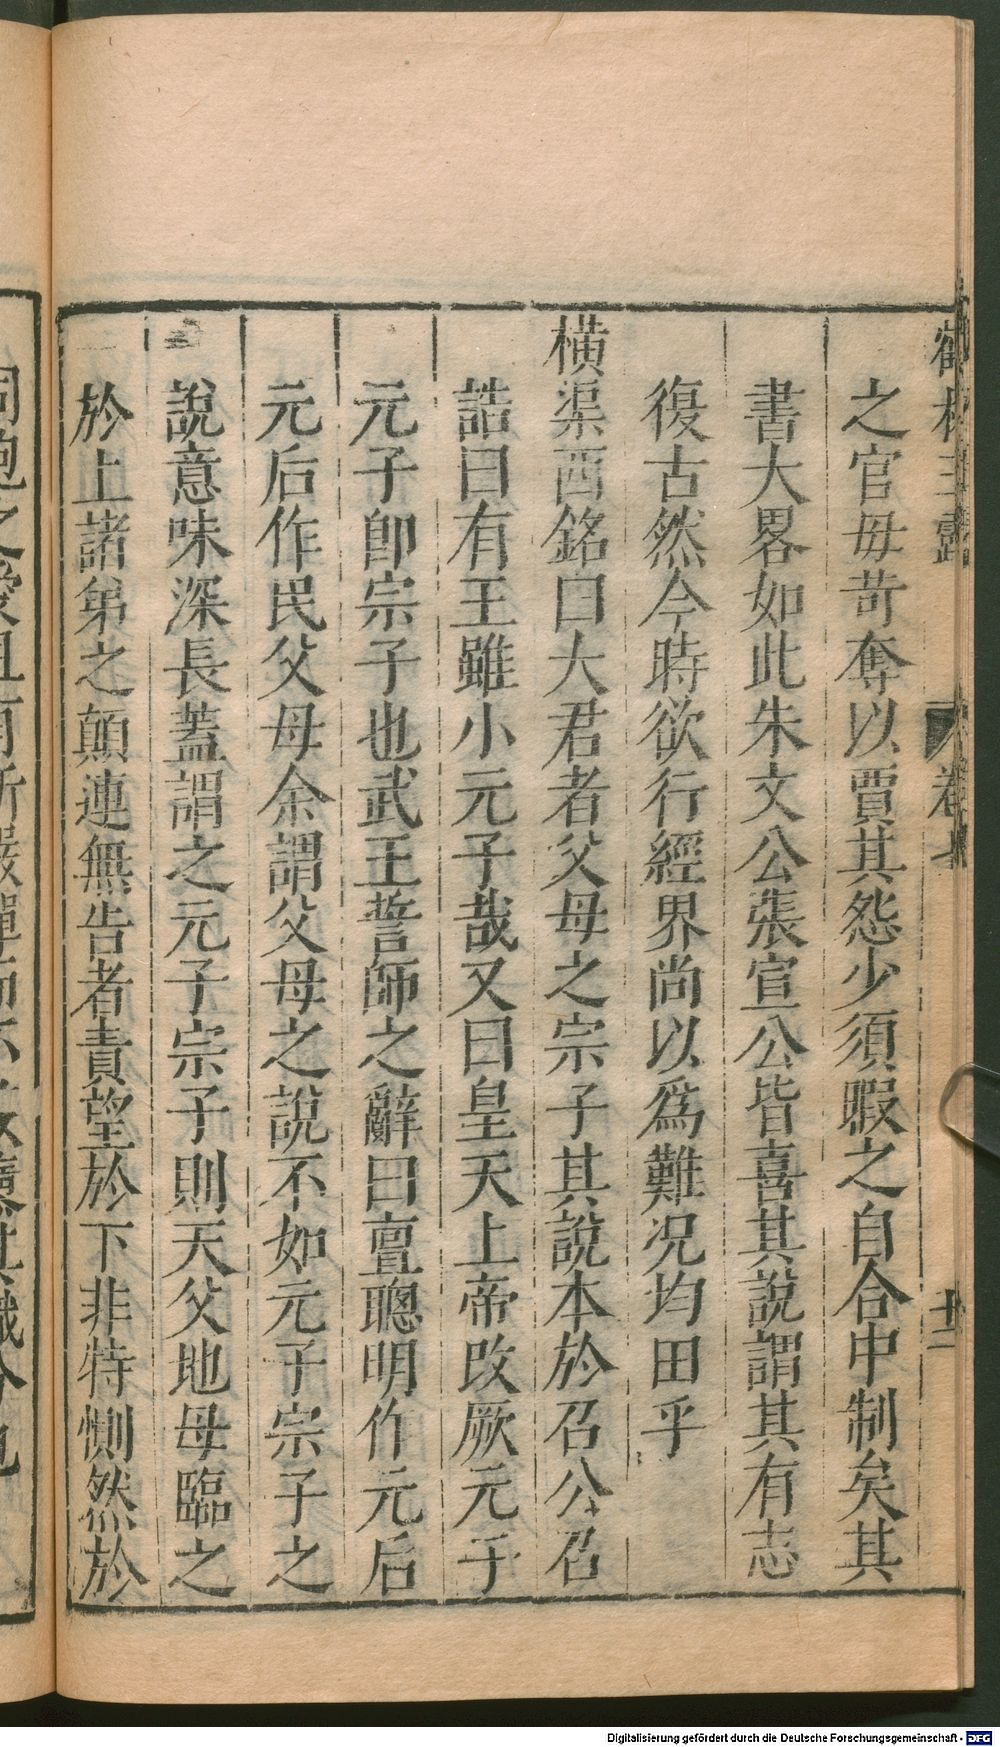 鶴林玉露
卷七
十二
之官毋苛奪以賈其怨少須暇之自合中制矣其
書大畧如此朱文公張宣公皆喜其說謂其有志
復古然今時欲行經界尚以爲難况均田乎
橫渠西銘曰大君者父母之宗子其說本於召公召
誥曰有王雖小元子哉又曰皇天上帝改厥元子
元子卽宗子也武王誓師之辭曰亶聰明作元后
元后作民父母余謂父母之說不如元子宗子之
說意味深長蓋謂之元子宗子則天父地母臨之
於上諸弟之顛連無告者責望於下非特惻然於
Digitalisierung gefördert durch die Deutsche Forschungsgemeinschaft - DFG